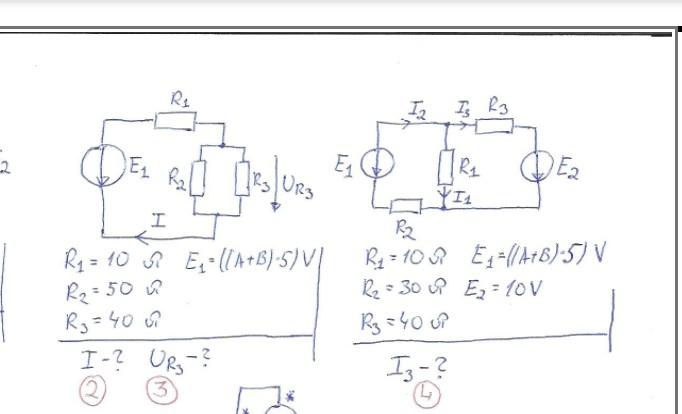 R1
E1
R2
R3
UR3
I
R1 = 10 Ω E1 = ((A+B)·5) V
R2 = 50 Ω
R3 = 40 Ω
I-? UR3-?
2 3
I2 I3 R3
E1
R1
E2
I1
R2
R1 = 10 Ω E1 = ((A+B)·5) V
R2 = 30 Ω E2 = 10V
R3 = 40 Ω
I3-?
4
*
*
2